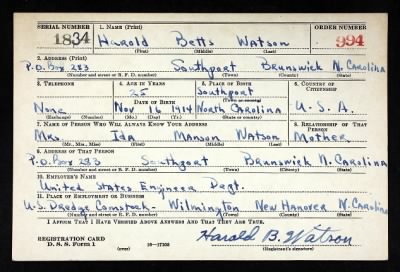 SERIAL NUMBER 1. NAME (Print) ORDER NUMBER
1834 Harold Betts Watson 994
(First) (Middle) (Last)
2. ADDRESS (Print)
P.O. Box 283 Southport Brunswick N. Carolina
(Number and street or R. F. D. number) (Town) (County) (State)
3. TELEPHONE 4. AGE IN YEARS 5. PLACE OF BIRTH 6. COUNTRY OF CITIZENSHIP
25 Southport
DATE OF BIRTH (Town or county)
None Nov 16 1914 North Carolina U.S.A.
(Exchange) (Number) (Mo.) (Day) (Yr.) (State or country)
7. NAME OF PERSON WHO WILL ALWAYS KNOW YOUR ADDRESS 8. RELATIONSHIP OF THAT PERSON
Mrs. Ida Manson Watson Mother
(Mr., Mrs., Miss) (First) (Middle) (Last)
9. ADDRESS OF THAT PERSON
P.O. Box 283 Southport Brunswick N. Carolina
(Number and street or R. F. D. number) (Town) (County) (State)
10. EMPLOYER'S NAME
United States Engineer Dept.
11. PLACE OF EMPLOYMENT OR BUSINESS
U.S. Dredge Comstock - Wilmington New Hanover N. Carolina
(Number and street or R. F. D. number) (Town) (County) (State)
I AFFIRM THAT I HAVE VERIFIED ABOVE ANSWERS AND THAT THEY ARE TRUE.
REGISTRATION CARD
D. S. S. Form 1 (over) 16-17105 Harold B. Watson
(Registrant's signature)